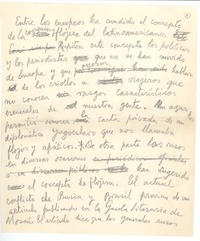 Entre los europeos ha cundido el concepto
de la flojera del latinoamericano.
Repiten este concepto los políticos
y los periodistas que no se han movido
de Europa y que
de los criollos viajeros que
no conocen rasgos característicos
esenciales de nuestra gente. Me
permitió conocer la carta privada de un
diplomático yugoeslavo que nos llamaba
flojos y apáticos. De otra parte los rusos
en diversas ocasiones
o en diversas han sugerido
el concepto de flojera. El actual
conflicto de Rusia y Brasil provino de un
artículo publicado en la Gaceta Literaria de
Moscú. El artículo dice que los generales rusos